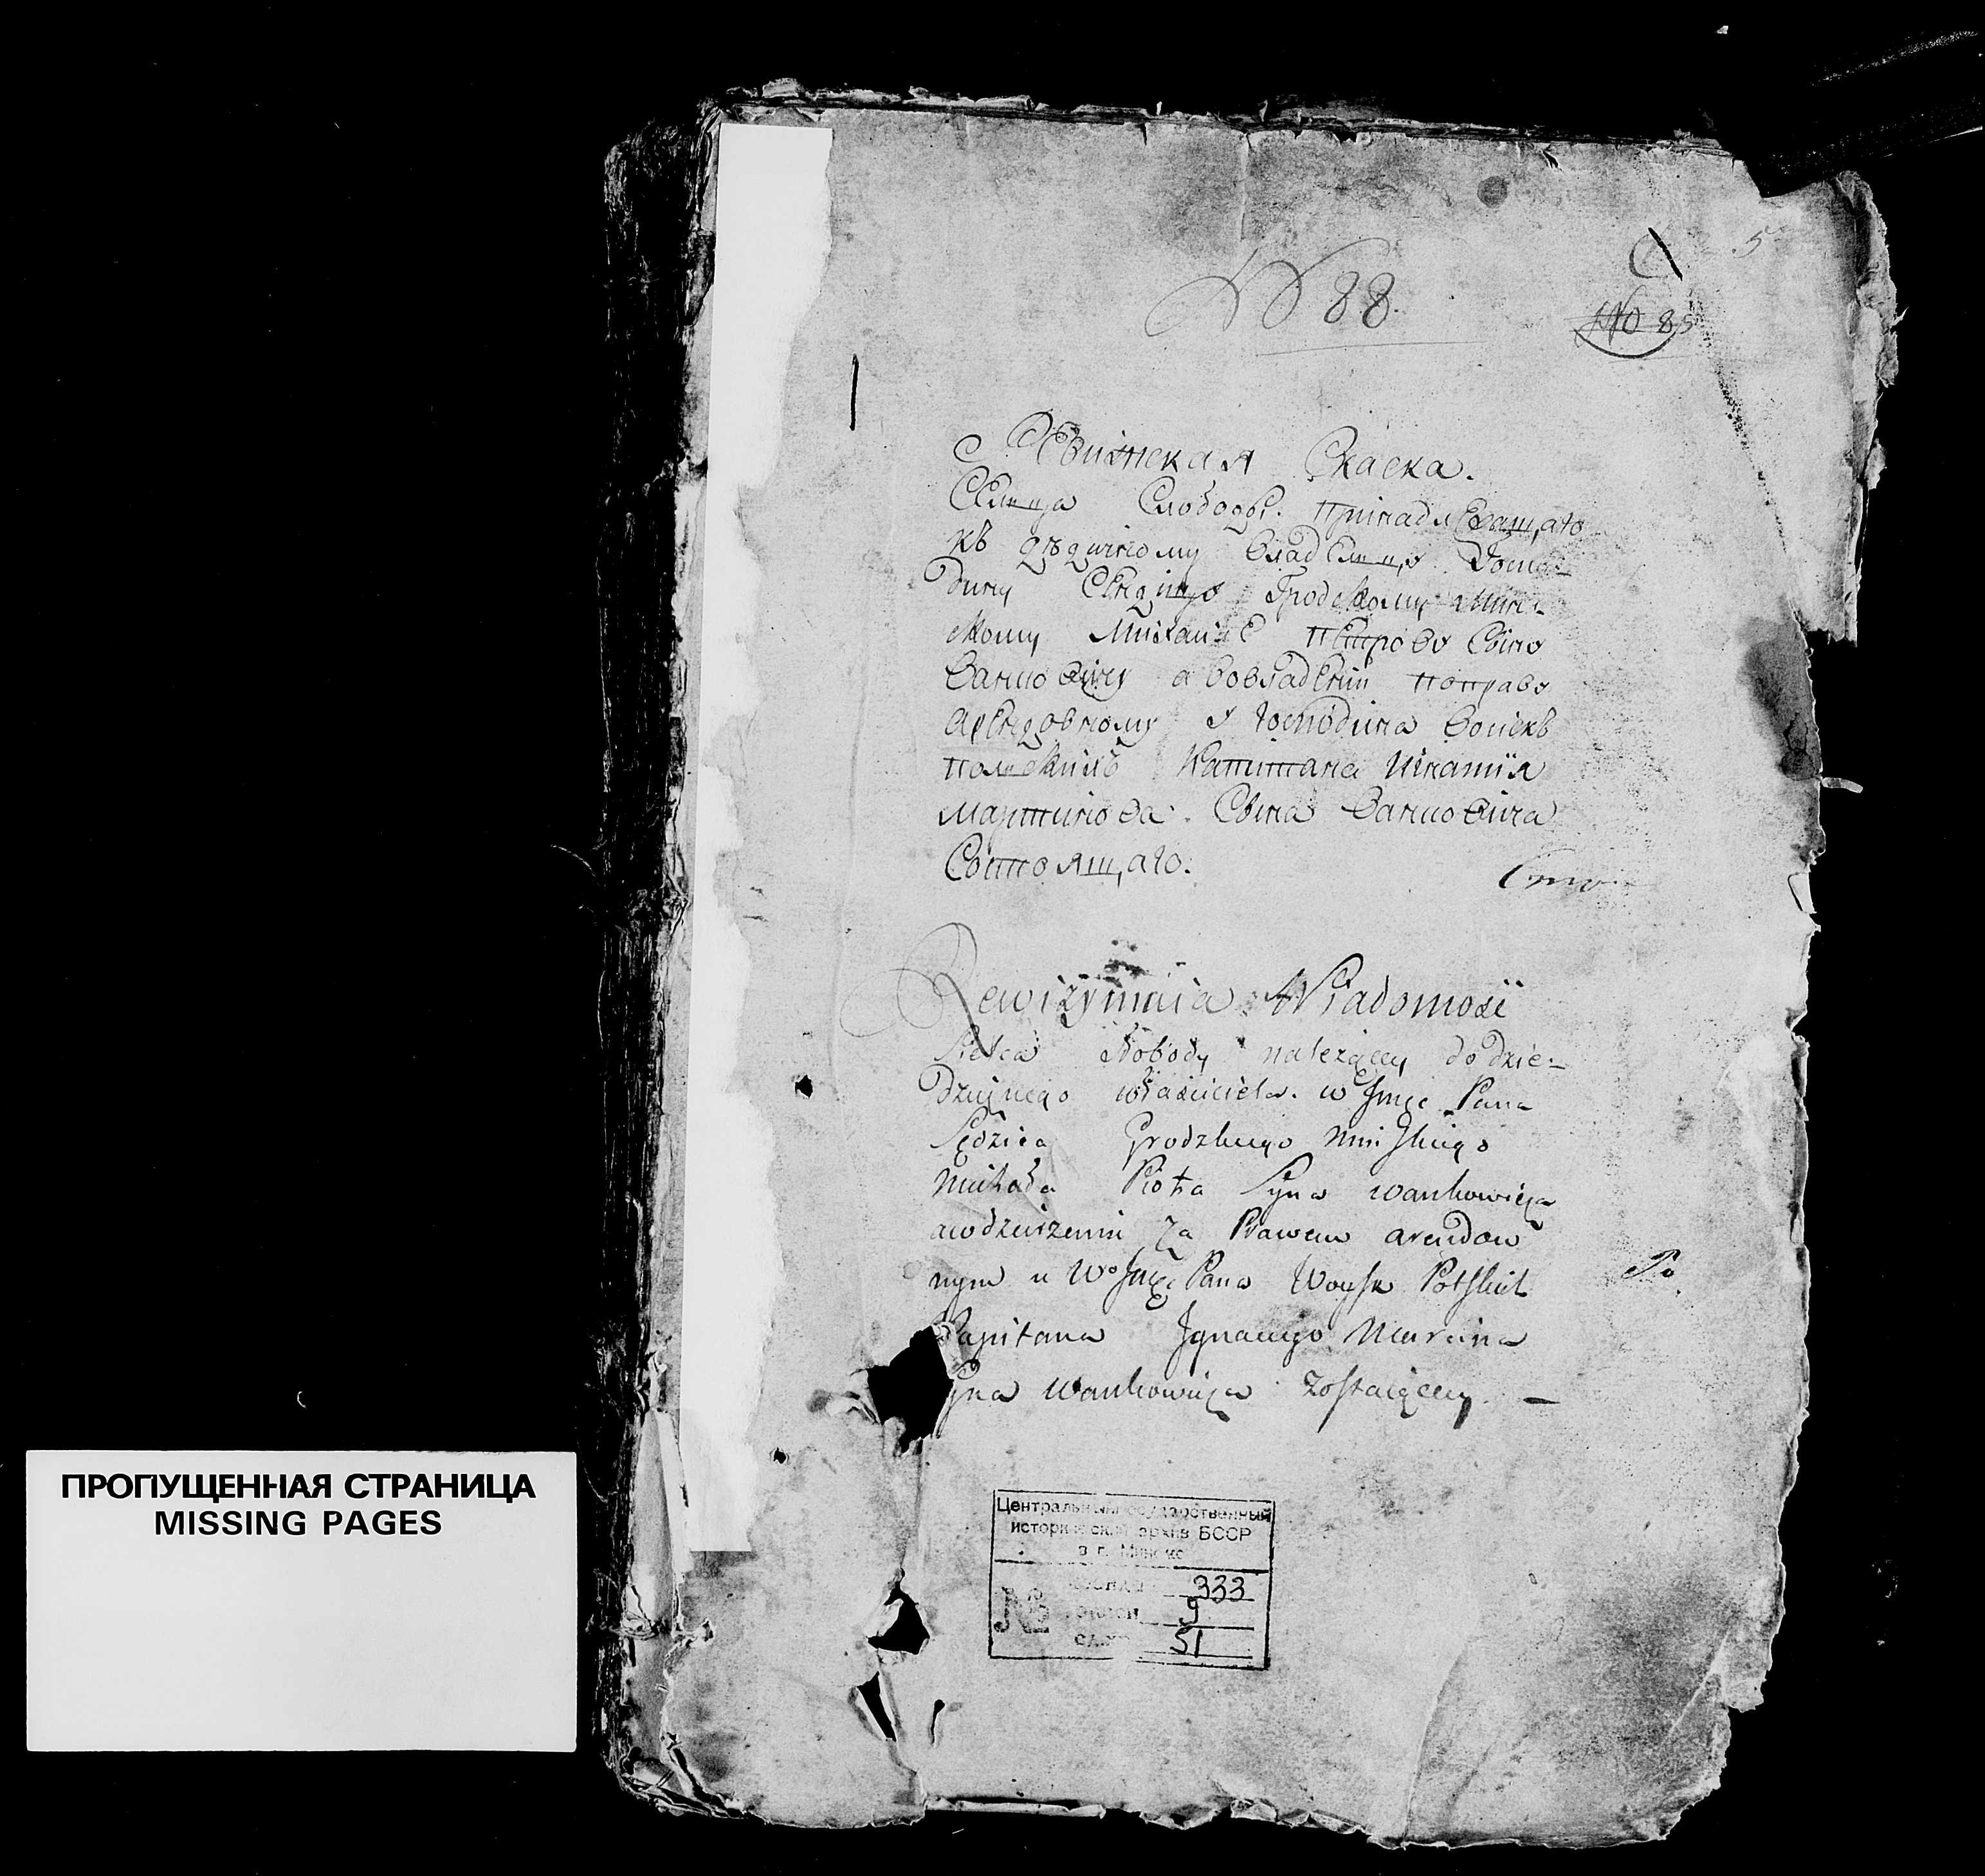 5
№ 88.
№ 85
Ревизская Скаска.
Селца Слободы. принадлежащаго
къ дѣдичному владелцу Госпо-
дину Сендзѣ Гродскому Минс-
кому Михаилѣ Петрова Сына
Ваньковичу а вовладении поправу
Арендовному у Господина Воискъ
полскихъ Капитана Игнатия
Мартинова Сына Ваньковича
Состоящаго.
Rewizyinaia Wiadomość
Sielca Słobody należący do dzie-
dzicznego właściciela w Jmci Pana
Sędzica Grodzkiego Mińskiego
Michała Piotra Syna Wankowicza
a w dzierżeniu za Prawem arendow
nym u Wo Jmci Pana Woysk Polskich
Kapitana Ignacego Marcina
Syna Wankowicza zostaiący. —
Центральный государственный
исторический архив БССР
в г. Минске
фонд 333
№ опись 9
ед.хр. 51
ПРОПУЩЕННАЯ СТРАНИЦА
MISSING PAGES